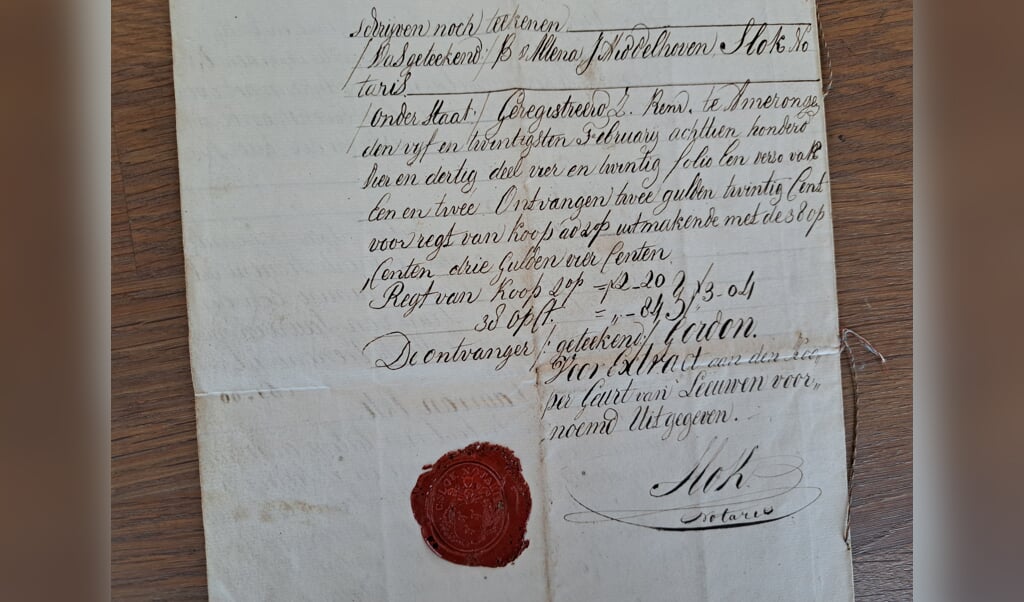 schrijven noch teekenen
/Was geteekend:/ B v Allena, J Middelhoven, Slok No
taris
/Onder Staat:/ Geregistreerd Z. Renv. te Amerongen
den vyf en twintigsten February achttien honderd
vier en dertig deel vier en twintig folio Een verso vak
Een en twee Ontvangen twee gulden twintig Cent
voor regt van Koop ad 2 p uitmakende met de 38 op
Centen drie Gulden vier Centen.
Regt van Koop 2 op = 2-20
38 op Ct. = „-84 3-04
De ontvanger /:geteekend/ Gordon.
Voor Extract aan den Koo
per Geurt van Leeuwen voor„
noemd Uitgegeven.
Slok
Notaris